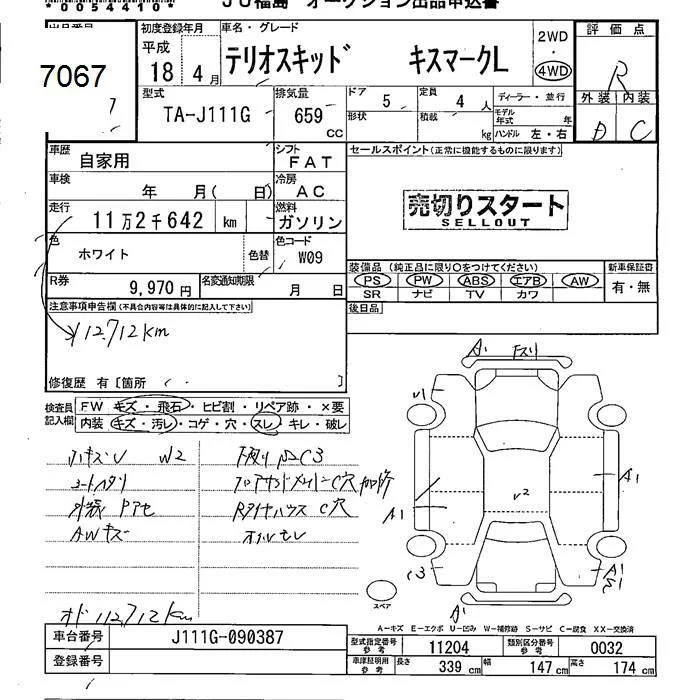 * 0 0 5 4 4 1 0 *
ＪＵ福島 オークション出品申込書
出品番号
7067
初度登録年月
平成
18 4 月
車名・グレード
テリオスキッド キスマークL
2WD
・
4WD
評価点
R
外装 内装
D C
型式
TA-J111G
排気量
659
CC
ドア
5
形状
定員
4 人
積載
kg
ディーラー・並行
モデル年式 年
ハンドル 左・右
車歴
自家用
シフト
FAT
セールスポイント(正常に機能するものに限ります)
車検
年 月( 日)
冷房
AC
売切りスタート
SELLOUT
走行
11万2千642 km
燃料
ガソリン
色
ホワイト
色替
色コード
W09
R券
9,970 円
名変通知期限
月 日
装備品(純正品に限り○をつけてください)
新車保証書
PS PW ABS エアB AW
SR ナビ TV カワ
有・無
後日品
注意事項申告欄(不具合内容等は具体的に記入して下さい)
112712km
修復歴 有〔箇所 〕
検査員
記入欄
FW キズ・飛石・ヒビ割・リペア跡・×要
内装 キズ・汚レ・コゲ・穴・スレ・キレ・破レ
W2
AWキズ
オド112,712km
A1
A1
A1
C3
A1
S1
スペア
A-キズ E-エクボ U-凹み W-補修跡 S-サビ C-腐食 XX-交換済
車台番号
J111G-090387
型式指定番号
参考
11204
類別区分番号
参考
0032
登録番号
車庫証明用
参考
長さ 339 cm 幅 147 cm 高さ 174 cm